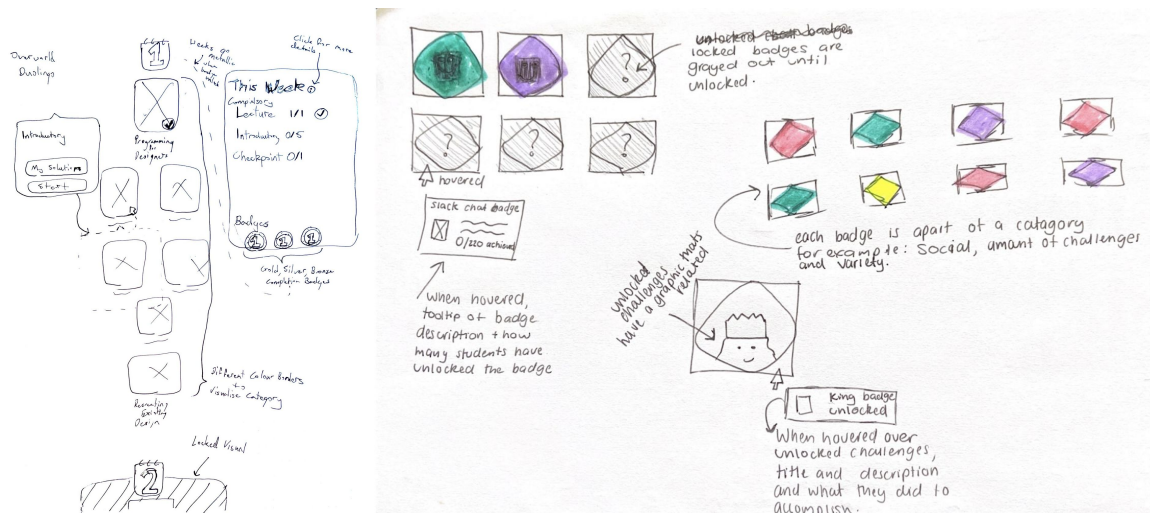 Overworld
Duolingo
1
Weeks go
metallic
when
Click for more
details
This Week
Compulsory
Lecture 1/1
Introductory 0/5
Checkpoint 0/1
Badges
1 1 1
Gold, Silver, Bronze
Completion Badges
Introductory
My Solution
Start
Programming
for
Designers
Different Colour Borders
to
Visualise Category
Recreating
Existing
Design
Locked Visual
2
?
unlocked badges
locked badges are
grayed out until
unlocked.
? ? ?
hovered
slack chat badge
0/220 achieved
When hovered,
tooltip of badge
description + how
many students have
unlocked the badge
each badge is apart of a catagory
for example: Social, amount of challenges
and variety.
unlocked
challenges
have a graphic thats
related
King badge
unlocked
When hovered over
unlocked challenges,
title and description
and what they did to
accomplish.